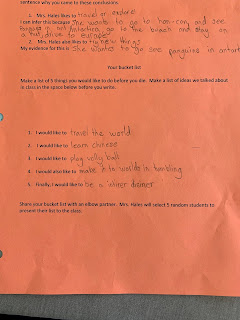 sentence why you came to these conclusions
1. Mrs. Hales likes to travel or explore
I can infer this because She wants to go to and see
go to the beach and stay on
to europe
2. Mrs. Hales also likes to try new things
My evidence for this is She wants to go see penguins in antart
Your bucket list
Make a list of 5 things you would like to do before you die. Make a list of ideas we talked about
in class in the space below before you write.
1. I would like to travel the world
2. I would like to learn chinese
3. I would like to play volly ball
4. I would also like to make it to worlds in tumbling
5. Finally, I would like to be a winer
Share your bucket list with an elbow partner. Mrs. Hales will select 5 random students to
present their list to the class.